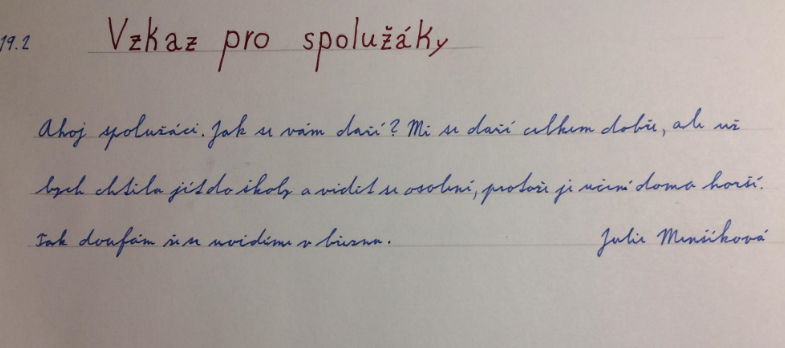 19.2 Vzkaz pro spolužáky
Ahoj spolužáci. Jak se vám daří? Mi se daří celkem dobře, ale už
bych chtěla jít do školy a vidět se osobně, protože je učení doma horší.
Tak doufám že se uvidíme v březnu. Julie Menšíková